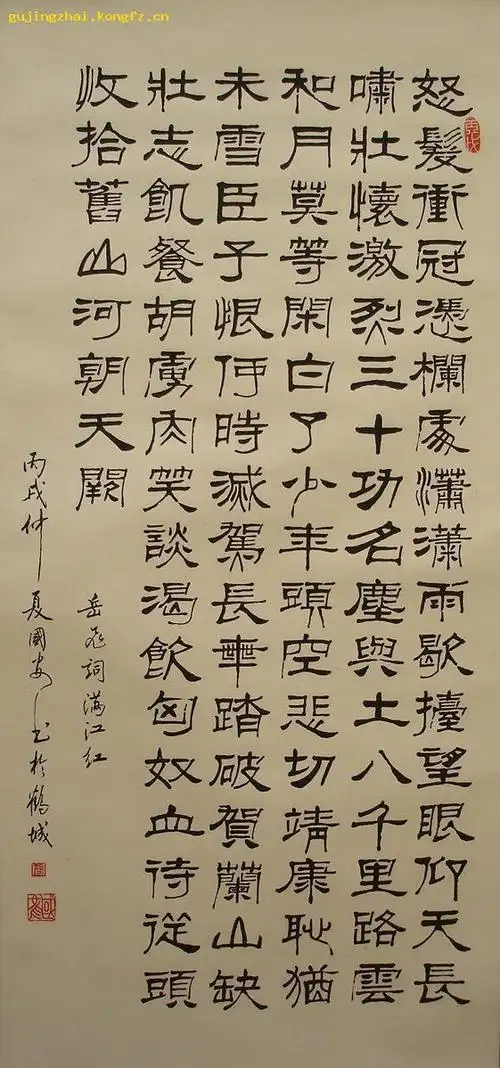 gujingzhai.kongfz.cn
怒髮衝冠憑欄處瀟瀟雨歇擡望眼仰天長
嘯壯懷激烈三十功名塵與土八千里路雲
和月莫等閑白了少年頭空悲切靖康耻猶
未雪臣子恨何時滅駕長車踏破賀蘭山缺
壯志飢餐胡虜肉笑談渴飲匈奴血待從頭
收拾舊山河朝天闕
岳飛詞滿江红
丙戌仲夏國安书於鶴城